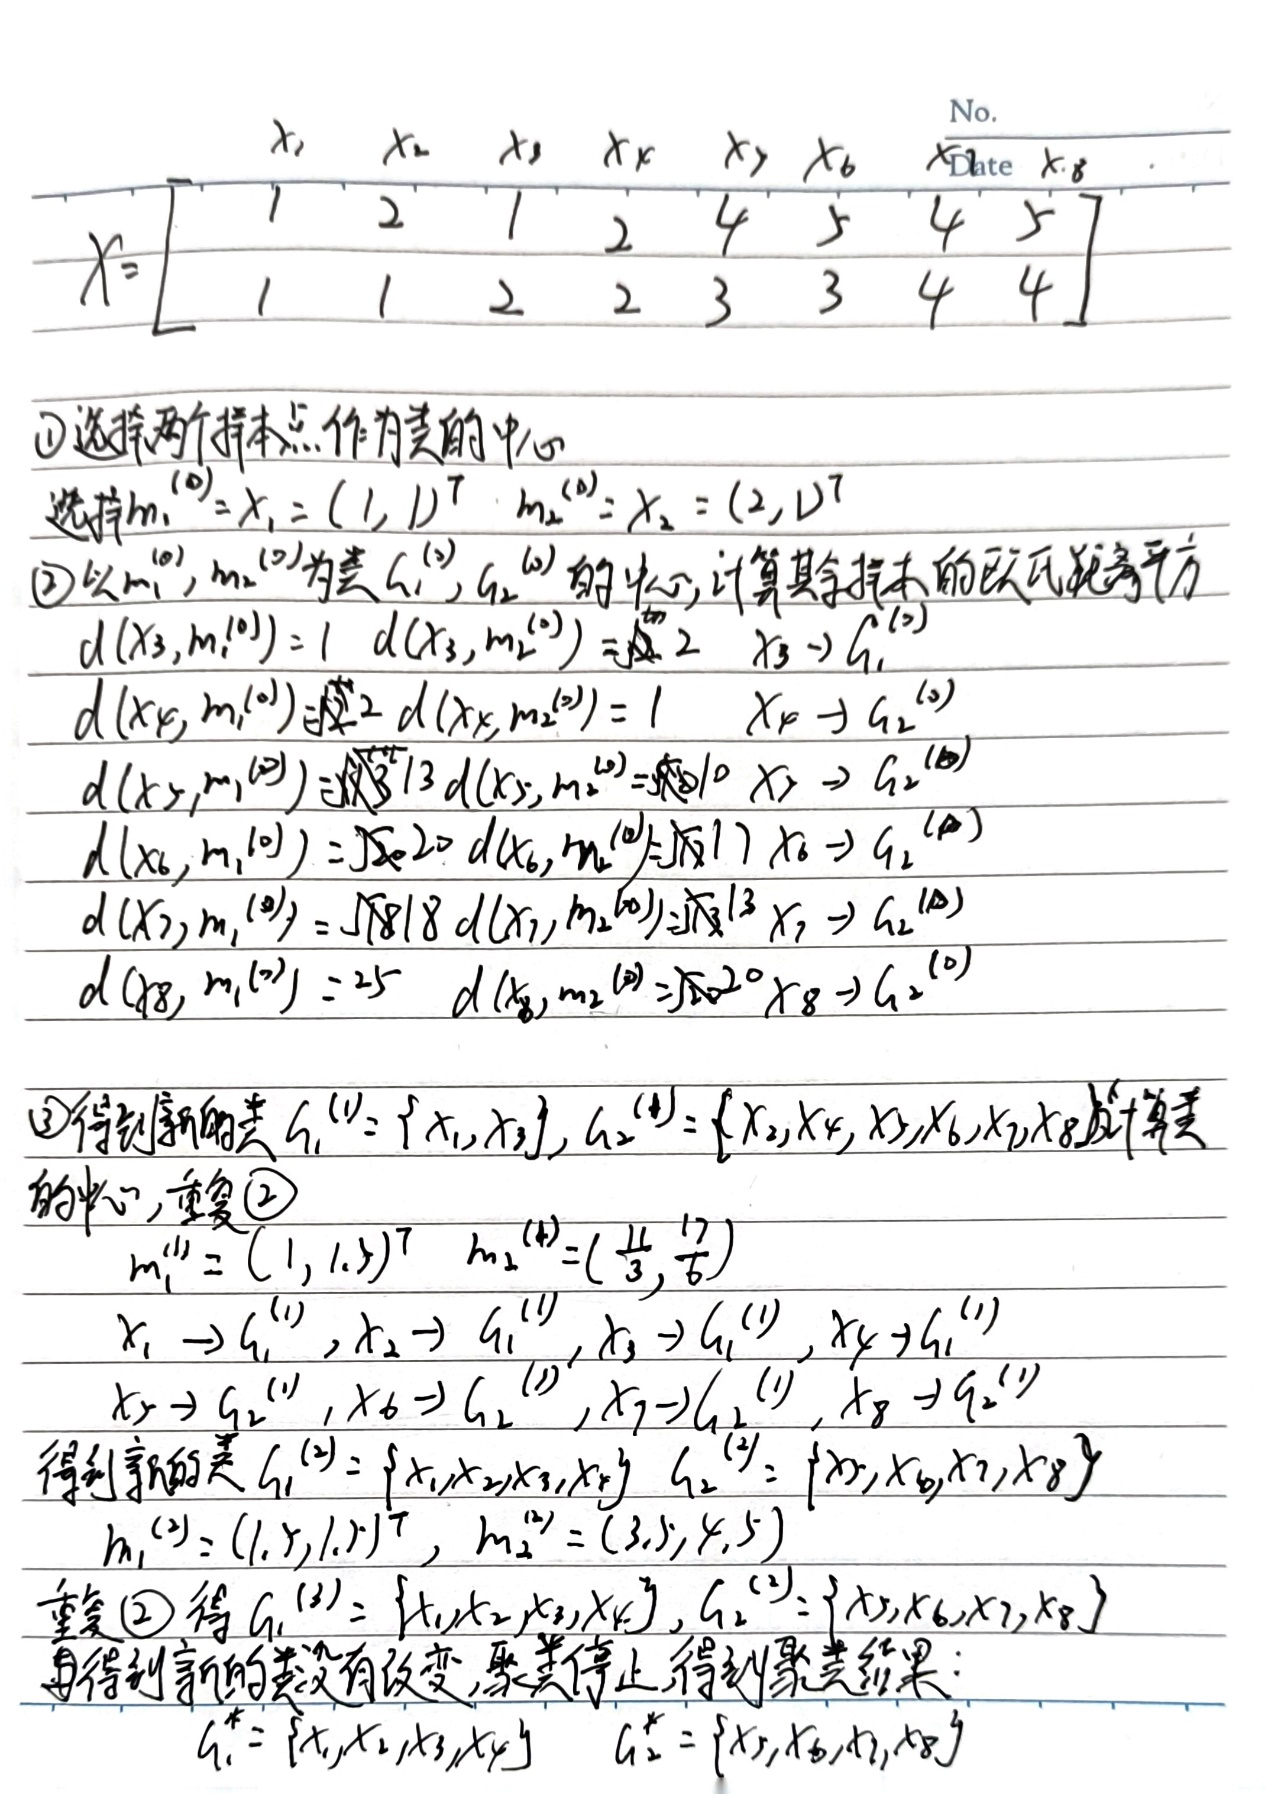 No.
Date
x₁ x₂ x₃ x₄ x₅ x₆ x₇ x₈
X = [ 1 2 1 2 4 5 4 5
1 1 2 2 3 3 4 4 ]
①选择两个样本点作为类的中心
选择m₁⁽⁰⁾ = x₁ = (1, 1)ᵀ m₂⁽⁰⁾ = x₂ = (2, 1)ᵀ
②以m₁⁽⁰⁾, m₂⁽⁰⁾为类G₁⁽⁰⁾, G₂⁽⁰⁾的中心, 计算其余样本的欧氏距离平方
d(x₃, m₁⁽⁰⁾) = 1 d(x₃, m₂⁽⁰⁾) = 2 x₃ → G₁⁽⁰⁾
d(x₄, m₁⁽⁰⁾) = 2 d(x₄, m₂⁽⁰⁾) = 1 x₄ → G₂⁽⁰⁾
d(x₅, m₁⁽⁰⁾) = 13 d(x₅, m₂⁽⁰⁾ = 10 x₅ → G₂⁽⁰⁾
d(x₆, m₁⁽⁰⁾) = 20 d(x₆, m₂⁽⁰⁾) = 17 x₆ → G₂⁽⁰⁾
d(x₇, m₁⁽⁰⁾) = 18 d(x₇, m₂⁽⁰⁾) = 13 x₇ → G₂⁽⁰⁾
d(x₈, m₁⁽⁰⁾) = 25 d(x₈, m₂⁽⁰⁾ = 20 x₈ → G₂⁽⁰⁾
③得到新的类G₁⁽¹⁾ = {x₁, x₃}, G₂⁽¹⁾ = {x₂, x₄, x₅, x₆, x₇, x₈} 计算类
的中心, 重复②
m₁⁽¹⁾ = (1, 1.5)ᵀ m₂⁽¹⁾ = (11/3, 17/6)
x₁ → G₁⁽¹⁾, x₂ → G₁⁽¹⁾, x₃ → G₁⁽¹⁾, x₄ → G₁⁽¹⁾
x₅ → G₂⁽¹⁾, x₆ → G₂⁽¹⁾, x₇ → G₂⁽¹⁾, x₈ → G₂⁽¹⁾
得到新的类G₁⁽²⁾ = {x₁, x₂, x₃, x₄} G₂⁽²⁾ = {x₅, x₆, x₇, x₈}
m₁⁽²⁾ = (1.5, 1.5)ᵀ, m₂⁽²⁾ = (3.5, 4.5)
重复②得G₁⁽³⁾ = {x₁, x₂, x₃, x₄}, G₂⁽²⁾ = {x₅, x₆, x₇, x₈}
得到新的类没有改变, 聚类停止, 得到聚类结果:
G₁* = {x₁, x₂, x₃, x₄} G₂* = {x₅, x₆, x₇, x₈}